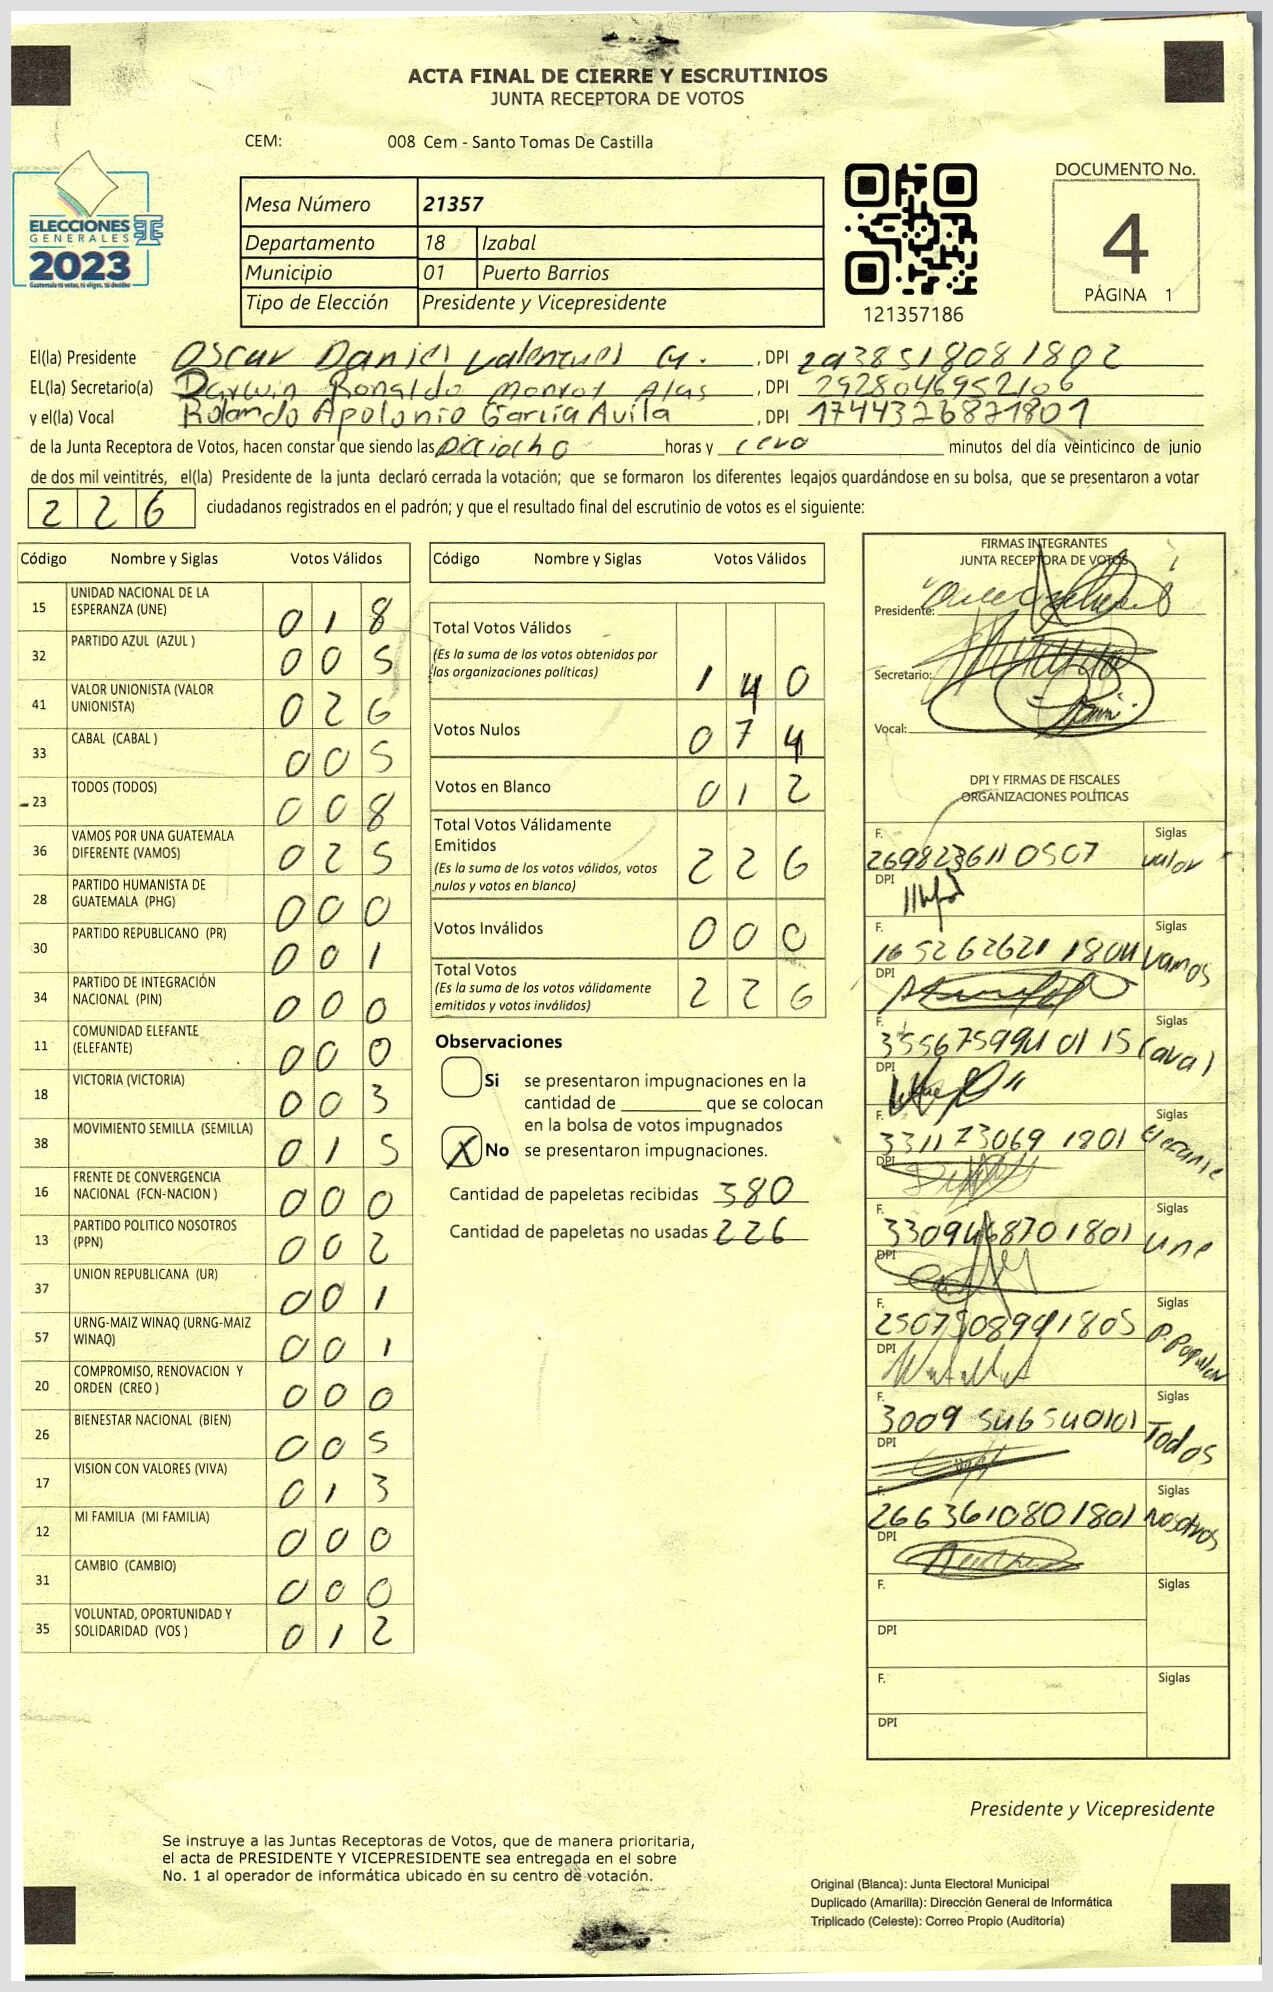 ACTA FINAL DE CIERRE Y ESCRUTINIOS
JUNTA RECEPTORA DE VOTOS
CEM: 008 Cem - Santo Tomas De Castilla
ELECCIONES
GENERALES
2023
Guatemala tú votas, tú eliges, tú decides
Mesa Número 21357
Departamento 18 Izabal
Municipio 01 Puerto Barrios
Tipo de Elección Presidente y Vicepresidente
121357186
DOCUMENTO No.
4
PÁGINA 1
El(la) Presidente Oscar Daniel Valenzuel G. , DPI 2938518081802
EL(la) Secretario(a) Darwin Ronaldo Monroy Alas , DPI 2928046952106
y el(la) Vocal Rolando Apolonio García Avila , DPI 1744326871801
de la Junta Receptora de Votos, hacen constar que siendo las Dieciocho horas y cero minutos del día veinticinco de junio
de dos mil veintitrés, el(la) Presidente de la junta declaró cerrada la votación; que se formaron los diferentes legajos guardándose en su bolsa, que se presentaron a votar
226 ciudadanos registrados en el padrón; y que el resultado final del escrutinio de votos es el siguiente:
Código Nombre y Siglas Votos Válidos
15 UNIDAD NACIONAL DE LA ESPERANZA (UNE) 018
32 PARTIDO AZUL (AZUL ) 005
41 VALOR UNIONISTA (VALOR UNIONISTA) 026
33 CABAL (CABAL ) 005
23 TODOS (TODOS) 008
36 VAMOS POR UNA GUATEMALA DIFERENTE (VAMOS) 025
28 PARTIDO HUMANISTA DE GUATEMALA (PHG) 000
30 PARTIDO REPUBLICANO (PR) 001
34 PARTIDO DE INTEGRACIÓN NACIONAL (PIN) 000
11 COMUNIDAD ELEFANTE (ELEFANTE) 000
18 VICTORIA (VICTORIA) 003
38 MOVIMIENTO SEMILLA (SEMILLA) 015
16 FRENTE DE CONVERGENCIA NACIONAL (FCN-NACION ) 000
13 PARTIDO POLITICO NOSOTROS (PPN) 002
37 UNION REPUBLICANA (UR) 001
57 URNG-MAIZ WINAQ (URNG-MAIZ WINAQ) 001
20 COMPROMISO, RENOVACION Y ORDEN (CREO ) 000
26 BIENESTAR NACIONAL (BIEN) 005
17 VISION CON VALORES (VIVA) 013
12 MI FAMILIA (MI FAMILIA) 000
31 CAMBIO (CAMBIO) 000
35 VOLUNTAD, OPORTUNIDAD Y SOLIDARIDAD (VOS ) 012
Código Nombre y Siglas Votos Válidos
Total Votos Válidos
(Es la suma de los votos obtenidos por
las organizaciones políticas) 140
Votos Nulos 074
Votos en Blanco 012
Total Votos Válidamente
Emitidos
(Es la suma de los votos válidos, votos
nulos y votos en blanco) 226
Votos Inválidos 000
Total Votos
(Es la suma de los votos válidamente
emitidos y votos inválidos) 226
Observaciones
Si se presentaron impugnaciones en la
cantidad de ________ que se colocan
en la bolsa de votos impugnados
X No se presentaron impugnaciones.
Cantidad de papeletas recibidas 380
Cantidad de papeletas no usadas 226
FIRMAS INTEGRANTES
JUNTA RECEPTORA DE VOTOS
Presidente:
Secretario:
Vocal:
DPI Y FIRMAS DE FISCALES
ORGANIZACIONES POLÍTICAS
F. Siglas
2698236110507 valor
DPI
F. Siglas
1652626211804 Vamos
DPI
F. Siglas
3556759940115 Caval
DPI
F. Siglas
3311730691801 Elefante
DPI
F. Siglas
3309468701801 une
DPI
F. Siglas
2507508991805 P. Popular
DPI
F. Siglas
3009546540101 Todos
DPI
F. Siglas
2663610801801 Nosotros
DPI
F. Siglas
DPI
F. Siglas
DPI
Presidente y Vicepresidente
Se instruye a las Juntas Receptoras de Votos, que de manera prioritaria,
el acta de PRESIDENTE Y VICEPRESIDENTE sea entregada en el sobre
No. 1 al operador de informática ubicado en su centro de votación.
Original (Blanca): Junta Electoral Municipal
Duplicado (Amarilla): Dirección General de Informática
Triplicado (Celeste): Correo Propio (Auditoría)